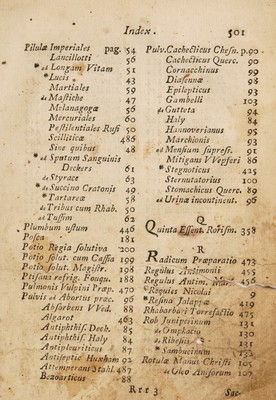 Index. 501
Pilulæ Imperiales pag. 54
Lancillotti 56
* ad Longam Vitam 51
* Lucis 43
Martiales 59
de Mastiche 47
Melanagogæ 56
Mercuriales 60
Pestilentiales Rufi 50
Scilliticæ 486
Sine quibus 48
* ad Sputum Sanguinis
Dockers 61
de Styrace 63
* de Succino Cratonis 49
* Tartareæ 58
de Tribus cum Rhab. 50
ad Tussim 62
Plumbum ustum 446
Posca 181
Potio Regia solutiva 200
Potio solut. cum Cassia 199
Potio solut. Magistr. 198
Ptisana refrig. Fouqu. 188
Pulmonis Vulpini Præp. 470
Pulvis ad Abortus præc. 96
Absorbens VVed. 88
Algarot 463
Antiphthis. Dec. 85
Antiphthis. Haly 84
Antipleuriticus 87
Antisepticus Huxham 92
Attemperans Stahl. 487
Bezoarticus 88
Pulv. Cachecticus Chesn. p. 90
Cachecticus Querc. 90
Cornacchinus 99
Diasennæ 98
Epilepticus 93
Gambelli 103
de Gutteta 94
Haly 84
Hannoverianus 95
Marchionis 93
ad Mensium suppress. 91
Mitigans VVepferi 86
* Stegnoticus 425
Sternutatorius 100
Stomachicus Querc. 89
ad Urinæ incontinent. 96
Q
Quinta Essent. Rorism. 358
R
Radicum Præparatio 473
Regulus Antimonii 455
Regulus Antim. 456
* Requies Nicolai 9
* Resina Jalappæ 419
Rhabarbari Torrefactio 475
Rob Juniperinum 131
de Omphatio 130
de Ribesiis 131
* Sambucinum 132
Rotulæ Manus Christi 105
de Oleo Anisorum 107
Rrr 3 Sac-